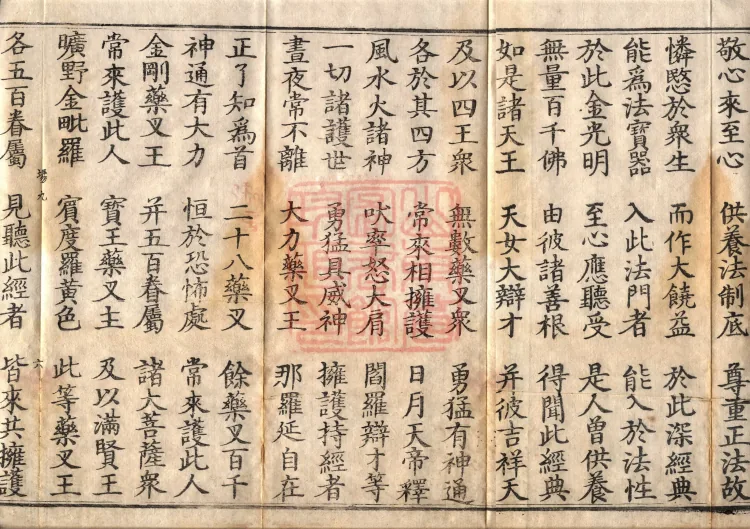 敬心來至心 供養法制底 尊重正法故
憐愍於衆生 而作大饒益 於此深經典
能爲法寶器 入此法門者 能入於法性
於此金光明 至心應聽受 是人曾供養
無量百千佛 由彼諸善根 得聞此經典
如是諸天王 天女大辯才 并彼吉祥天
及以四王衆 無數藥叉衆 勇猛有神通
各於其四方 常來相擁護 日月天帝釋
風水火諸神 吠率怒大肩 閻羅辯才等
一切諸護世 勇猛具威神 擁護持經者
晝夜常不離 大力藥叉王 那羅延自在
正了知爲首 二十八藥叉 餘藥叉百千
神通有大力 恒於恐怖處 常來護此人
金剛藥叉王 并五百眷屬 諸大菩薩衆
常來護此人 寶王藥叉主 及以滿賢王
曠野金毗羅 賓度羅黃色 此等藥叉王
場九 六
各五百眷屬 見聽此經者 皆來共擁護